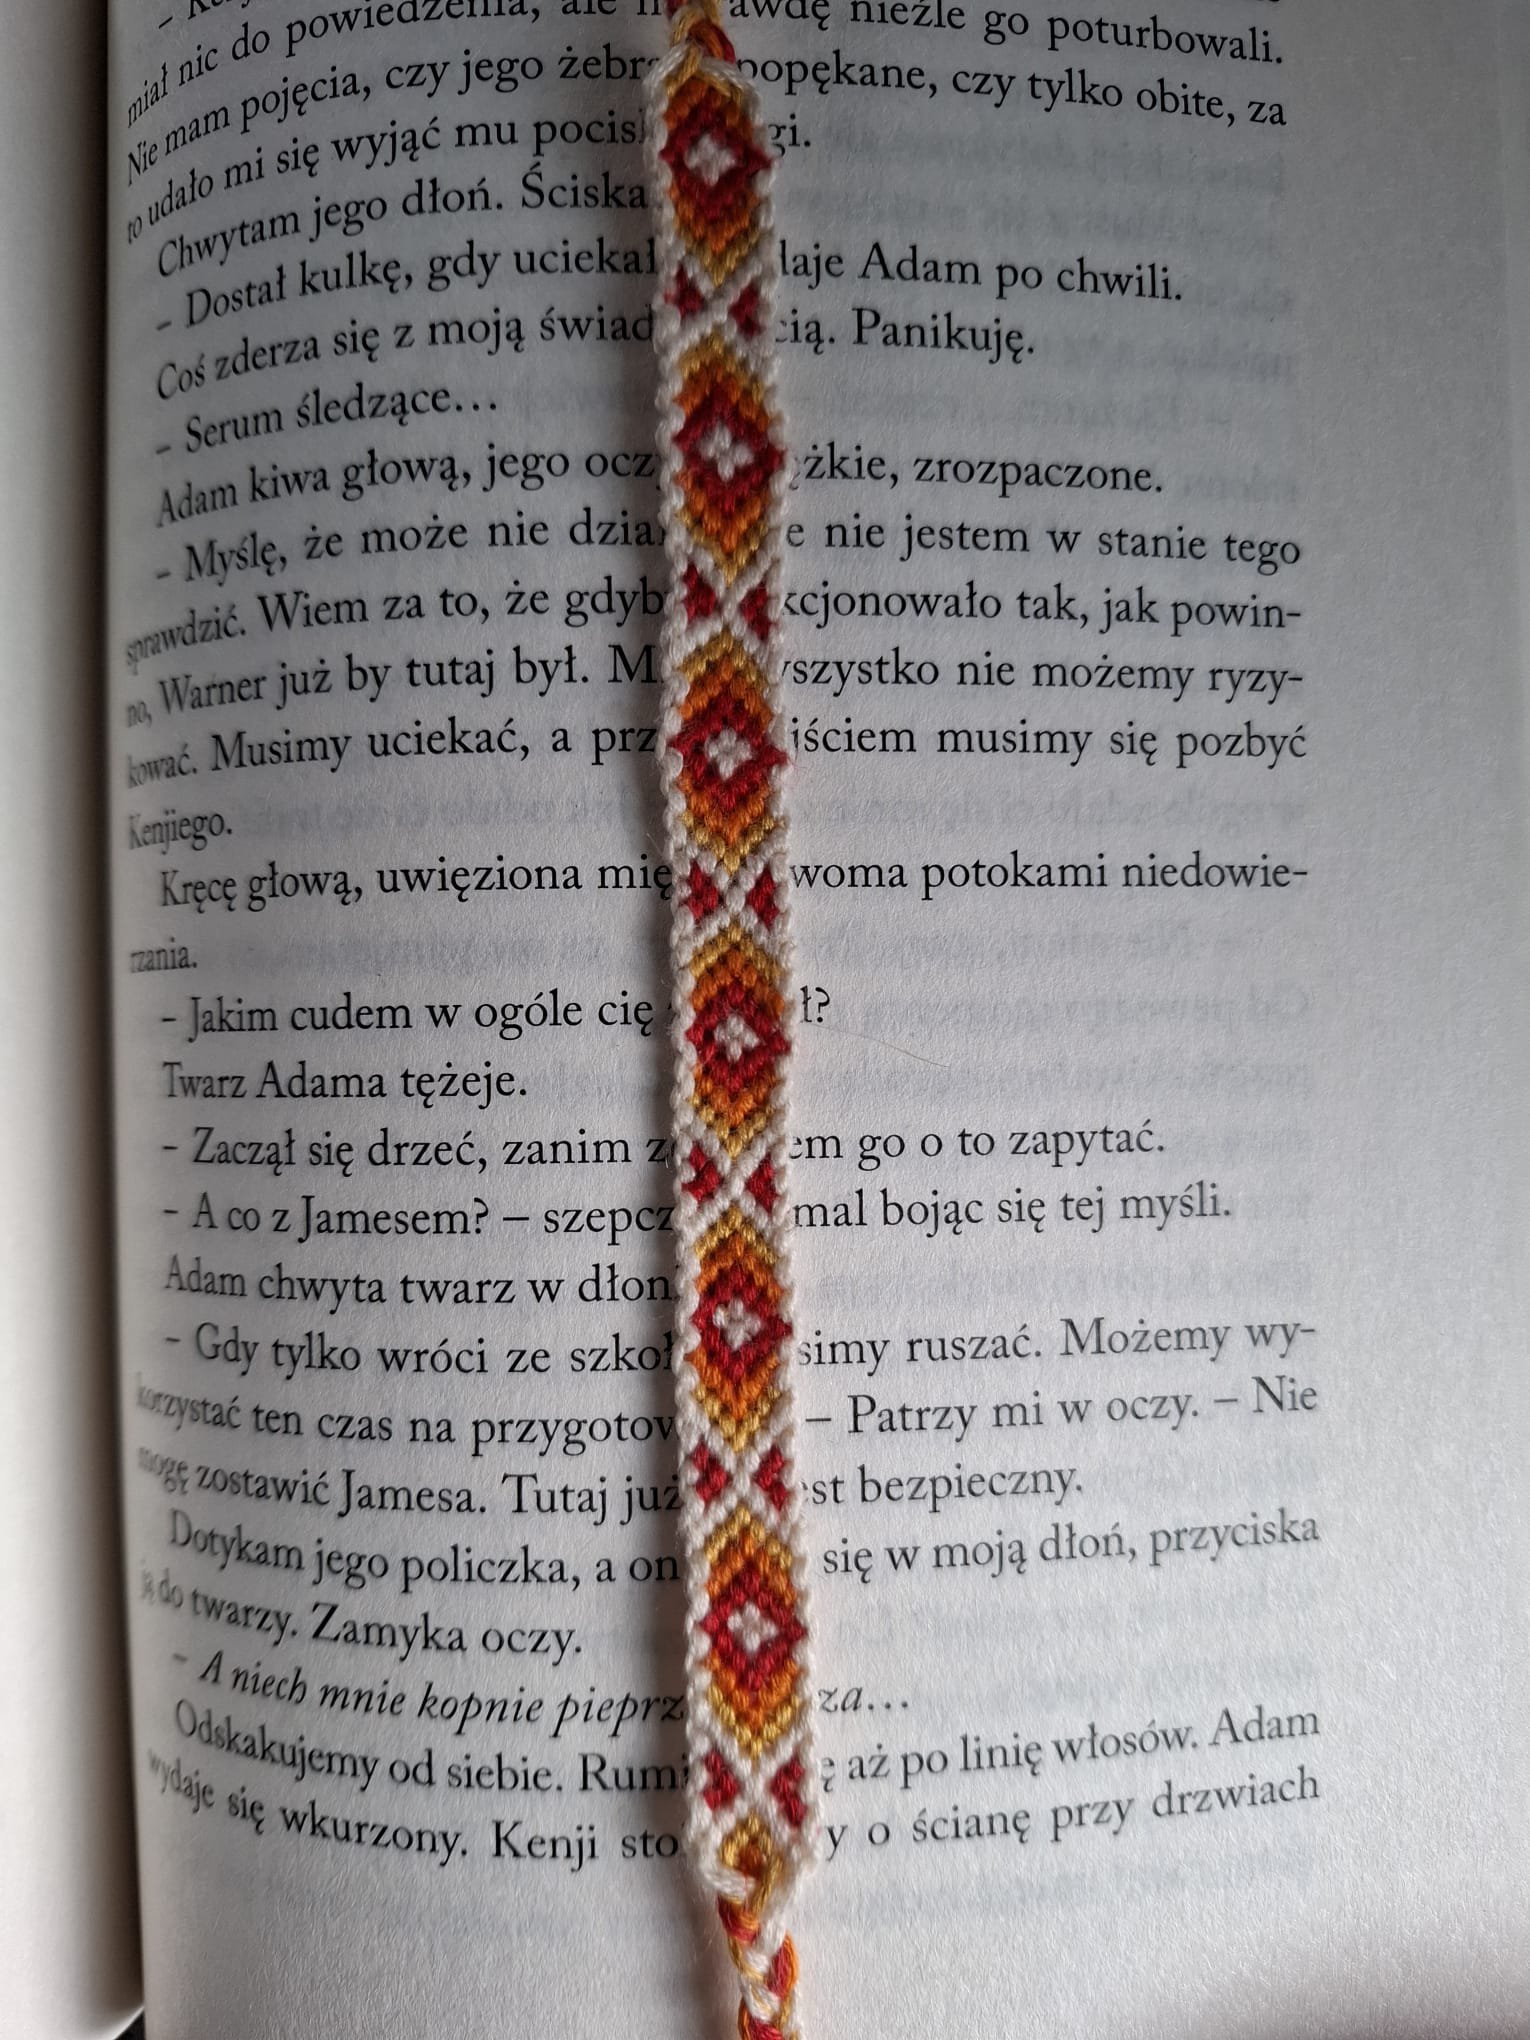 miał nic do powiedzenia, ale nieźle go poturbowali.
Nie mam pojęcia, czy jego popękane, czy tylko obite, za
to udało mi się wyjąć mu
Chwytam jego dłoń.
– Dostał kulkę, gdy Adam po chwili.
Coś zderza się z moją Panikuję.
– Serum śledzące…
Adam kiwa głową, jego zrozpaczone.
– Myślę, że może nie nie jestem w stanie tego
sprawdzić. Wiem za to, że tak, jak powin-
no, Warner już by tutaj był. wszystko nie możemy ryzy-
kować. Musimy uciekać, a musimy się pozbyć
Kenjiego.
Kręcę głową, uwięziona potokami niedowie-
rzania.
– Jakim cudem w ogóle cię
Twarz Adama tężeje.
– Zaczął się drzeć, zanim go o to zapytać.
– A co z Jamesem? – bojąc się tej myśli.
Adam chwyta twarz w
– Gdy tylko wróci ze ruszać. Możemy wy-
korzystać ten czas na – Patrzy mi w oczy. – Nie
mogę zostawić Jamesa. Tutaj już bezpieczny.
Dotykam jego policzka, a on się w moją dłoń, przyciska
ją do twarzy. Zamyka oczy.
– A niech mnie kopnie
Odskakujemy od siebie. aż po linię włosów. Adam
wydaje się wkurzony. Kenji o ścianę przy drzwiach